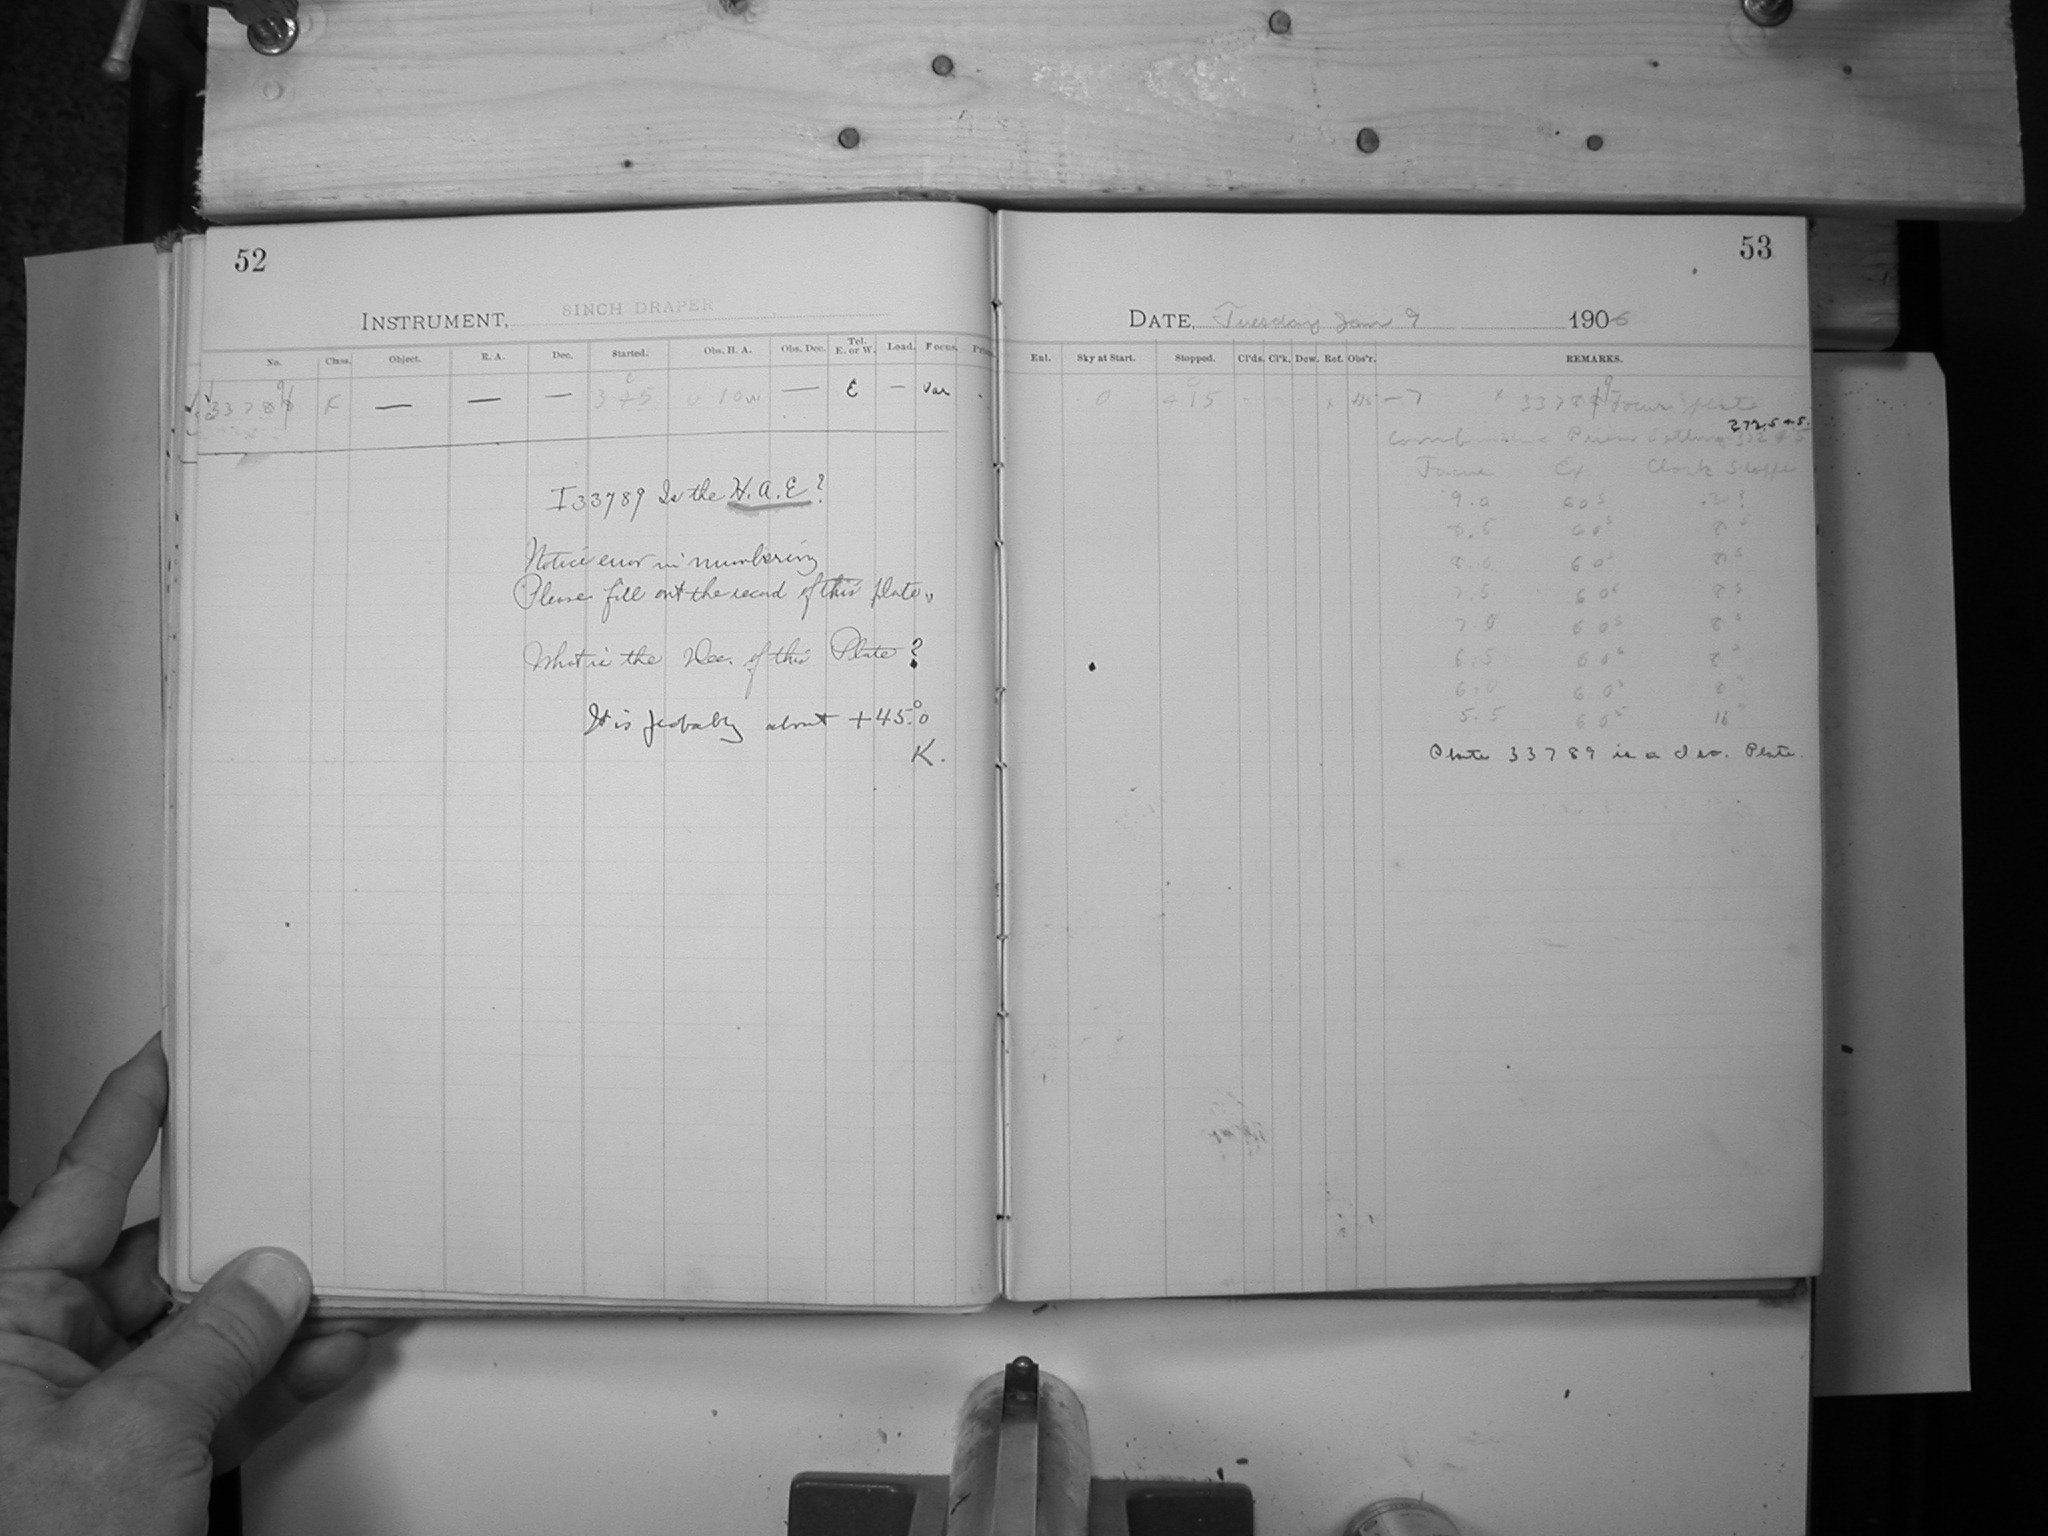 52
INSTRUMENT, 8INCH DRAPER
No. Class. Object. R. A. Dec. Started. Obs. H. A. Obs. Dec. Tel. E. or W. Load. Focus.
F — — — 345 0 10 w — E — Var
I 33789 Is the H. A. E?
Notice error in numbering
Please fill out the record of this plate.
What is the Dec. of this Plate?
It is probably about +45°.0
K.
53
DATE, Tuesday Jan 9 1906
Enl. Sky at Start. Stopped. Cl'ds. Cl'k. Dew. Ref. Obs'r. REMARKS.
0 415 Focus plate
272.5 + 5.
Focus Ex Clock Stopped
9.0 60s
8.5 60s 8s
8.0 60s 8s
7.5 60s 8s
7.0 60s 8s
6.5 60s 8s
6.0 60s 8s
5.5 60s 16s
Plate 33789 is a Iso. Plate.